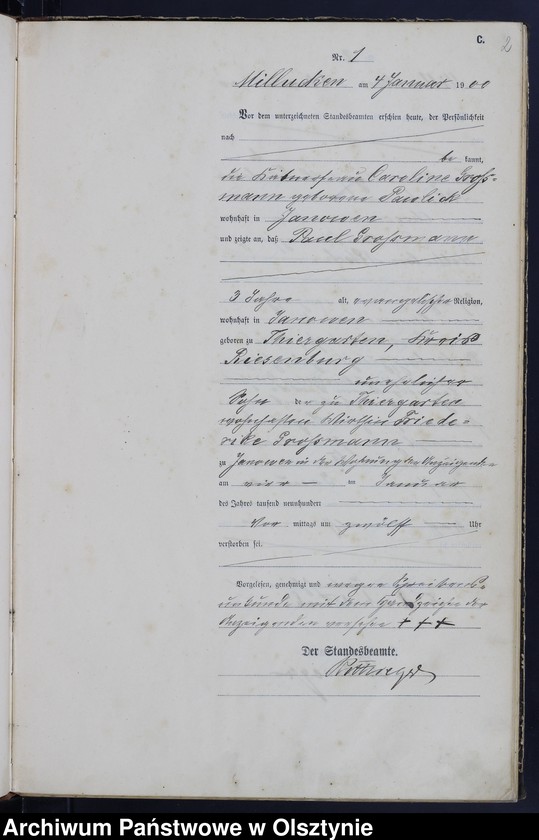 C.
2
Nr. 1
Milluchen am 4 Januar 1900
Vor dem unterzeichneten Standesbeamten erschien heute, der Persönlichkeit
nach
be kannt,
die Käthnerfrau Caroline Groß-
mann geborene Pawlick
wohnhaft in Janowen
und zeigte an, daß Paul Großmann
3 Jahre alt, evangelischer Religion,
wohnhaft in Janowen
geboren zu Thiergarten, Kreis
Riesenburg
unehelicher
Sohn der zu Thiergarten
wohnhaften Wirthin Friede-
rike Großmann
zu Janowen in der Wohnung der Anzeigende-
am vier im Januar
des Jahres tausend neunhundert
Vor mittags um zwölf Uhr
verstorben sei.
Vorgelesen, genehmigt und wegen Schreibens-
unkunde mit dem Handzeichen der
Anzeigenden versehen + + +
Der Standesbeamte.
Archiwum Państwowe w Olsztynie